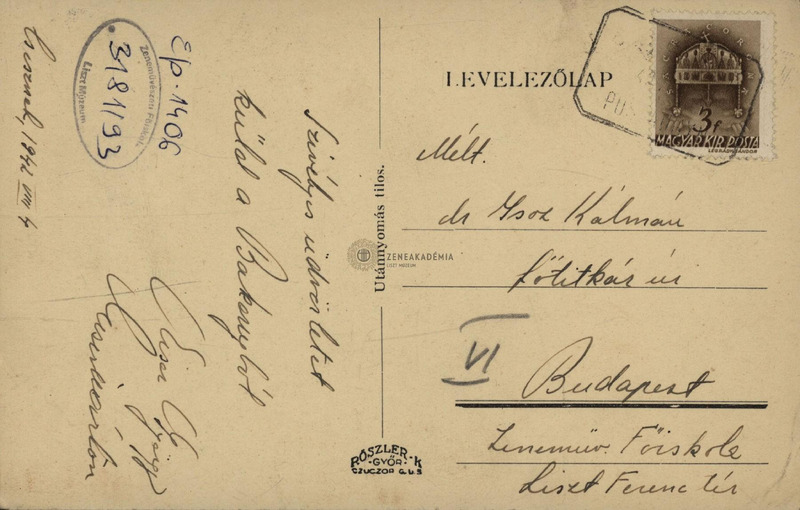 Csesznek, 1942 VIII 4
Zeneművészeti Főiskola
3181/93
Liszt Múzeum
Ep. 1406
Szívélyes üdvözletet
küld a Bakonyból
György
LEVELEZŐLAP
Utánnyomás tilos.
SACRA CORONA
3f
MAGYAR KIR. POSTA
LÉGRÁDY SÁNDOR
Mélt.
dr Isoz Kálmán
főtitkár úr
ZENEAKADÉMIA
LISZT MÚZEUM
VI
Budapest
Zeneműv. Főiskola
Liszt Ferenc tér
RÓSZLER·K
·GYŐR·
CZUCZOR G.U.5